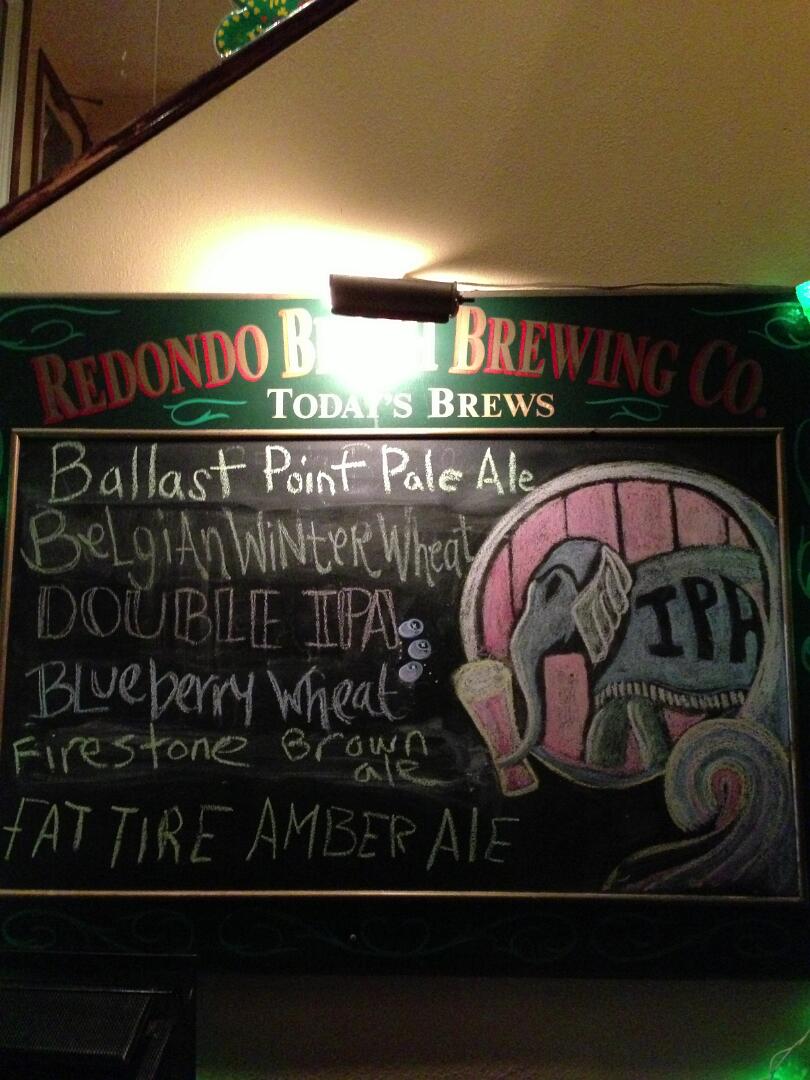 REDONDO BEACH BREWING CO.
TODAY'S BREWS
Ballast Point Pale Ale
BeLgiAn WiNterWheat
DOUBLE IPA
BLueberry Wheat
Firestone Brown
ale
FAT TIRE AMBER AlE
IPA